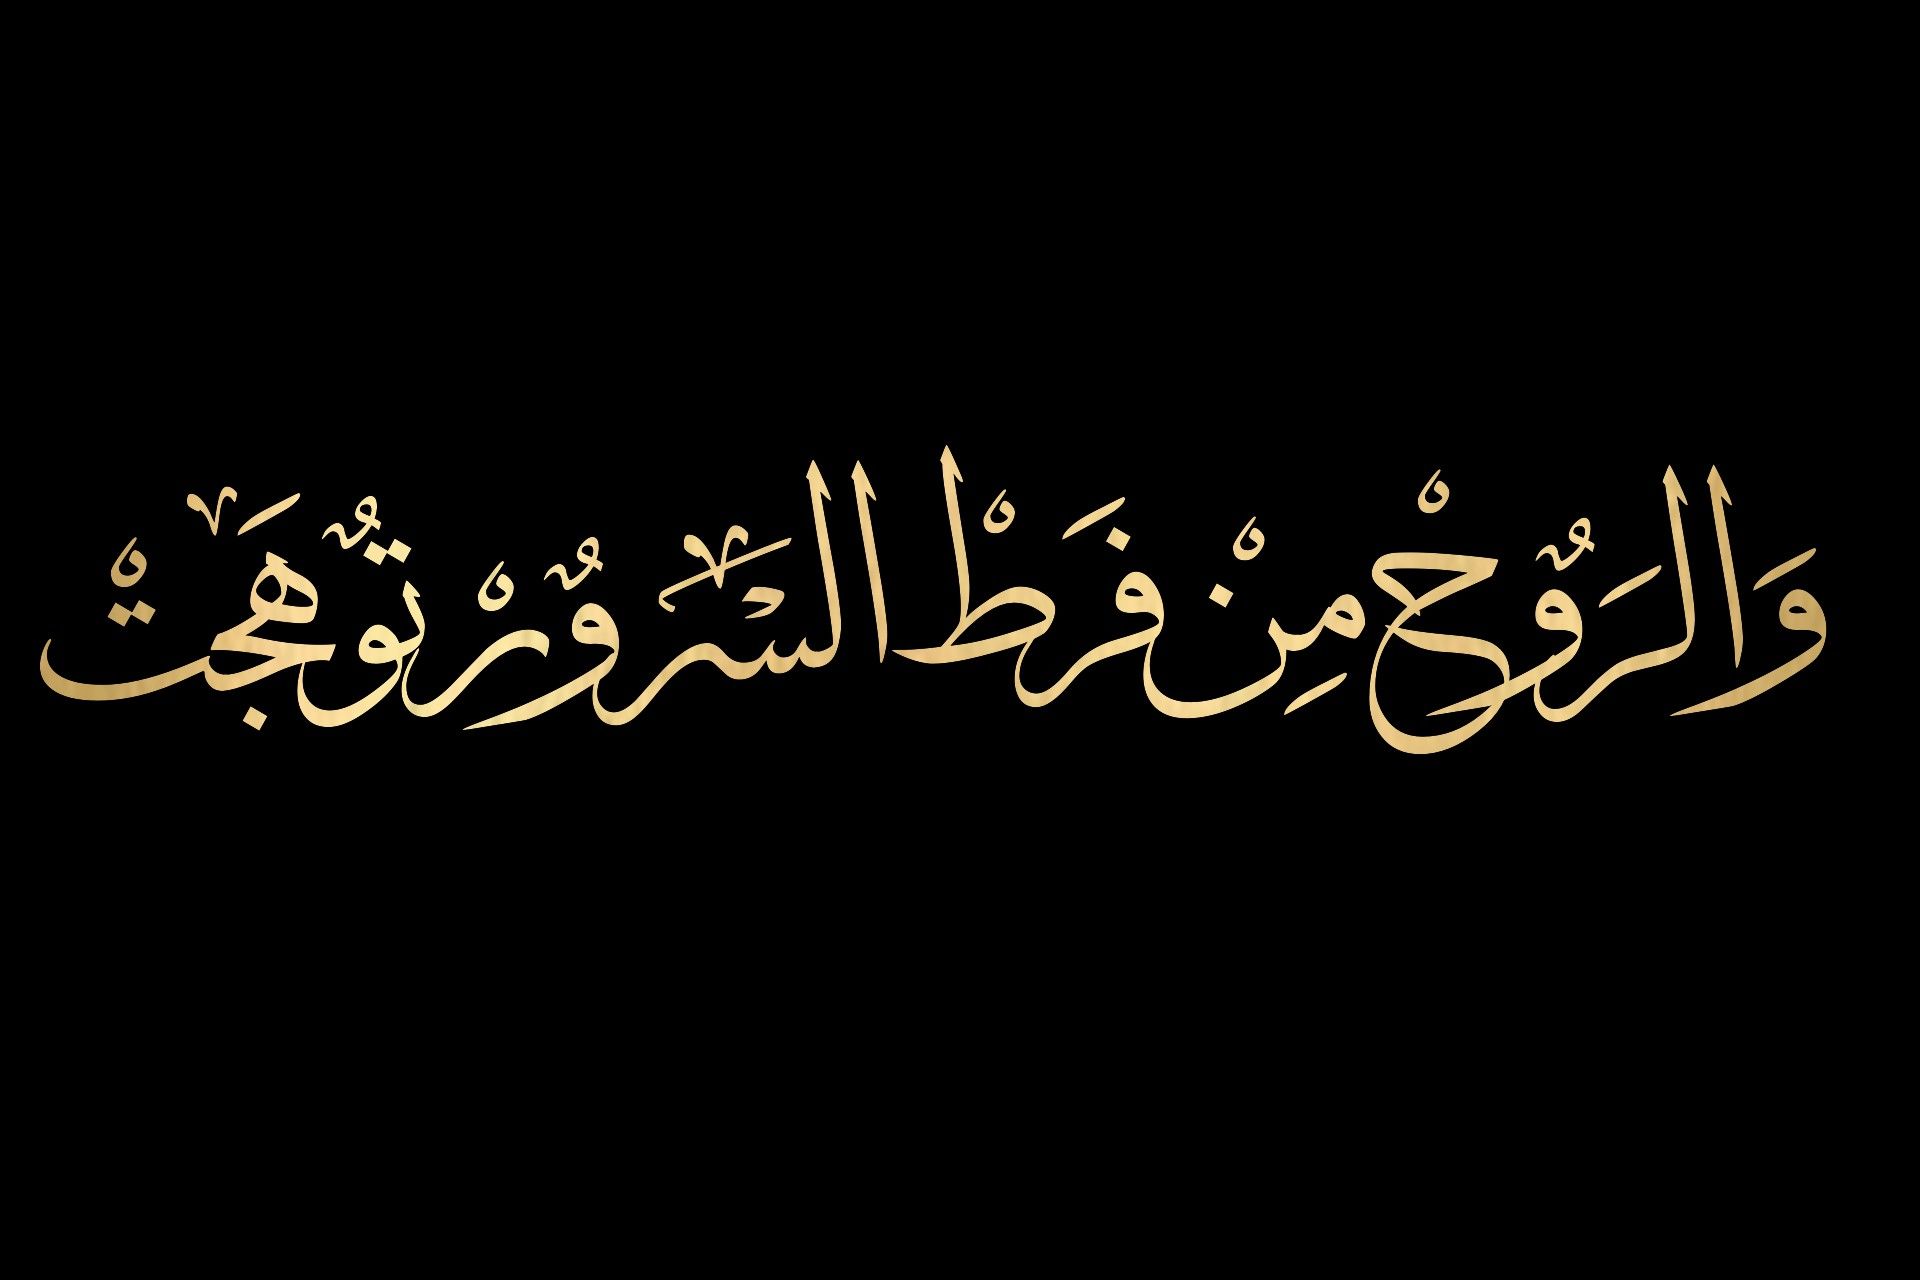 وَالرَوُحْ مِنْ فَرَطْ السَروُرْ توُهَجَتْ